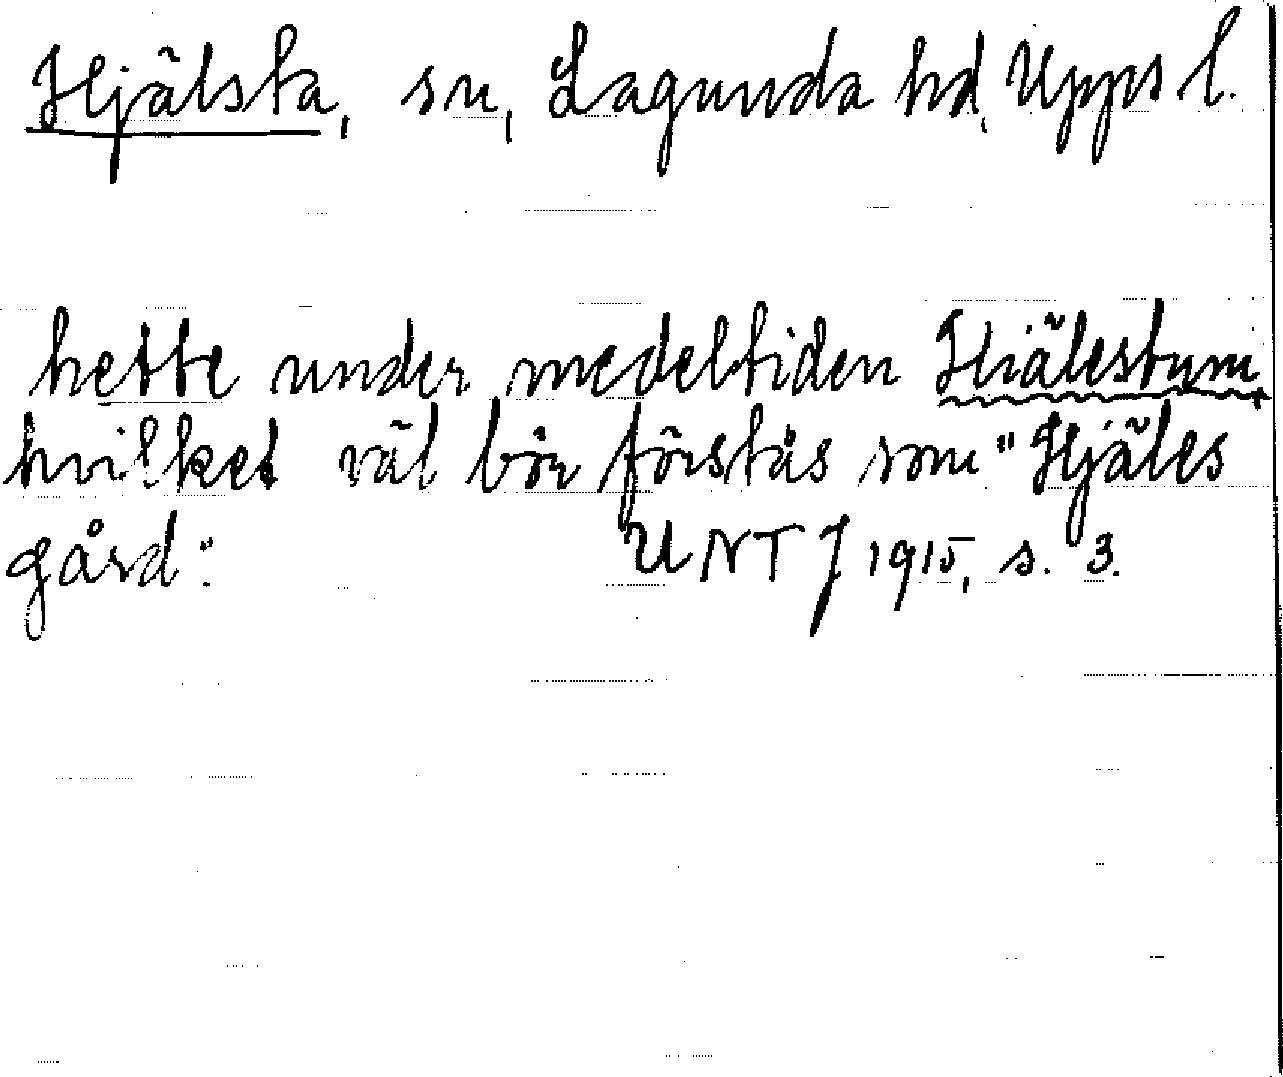 Hjälsta, sn, Lagunda hd, Upps l.
hette under medeltiden Hiälestum,
hvilket väl bör förstås som "Hjäles
gård". UNT J 1915, s. 3.